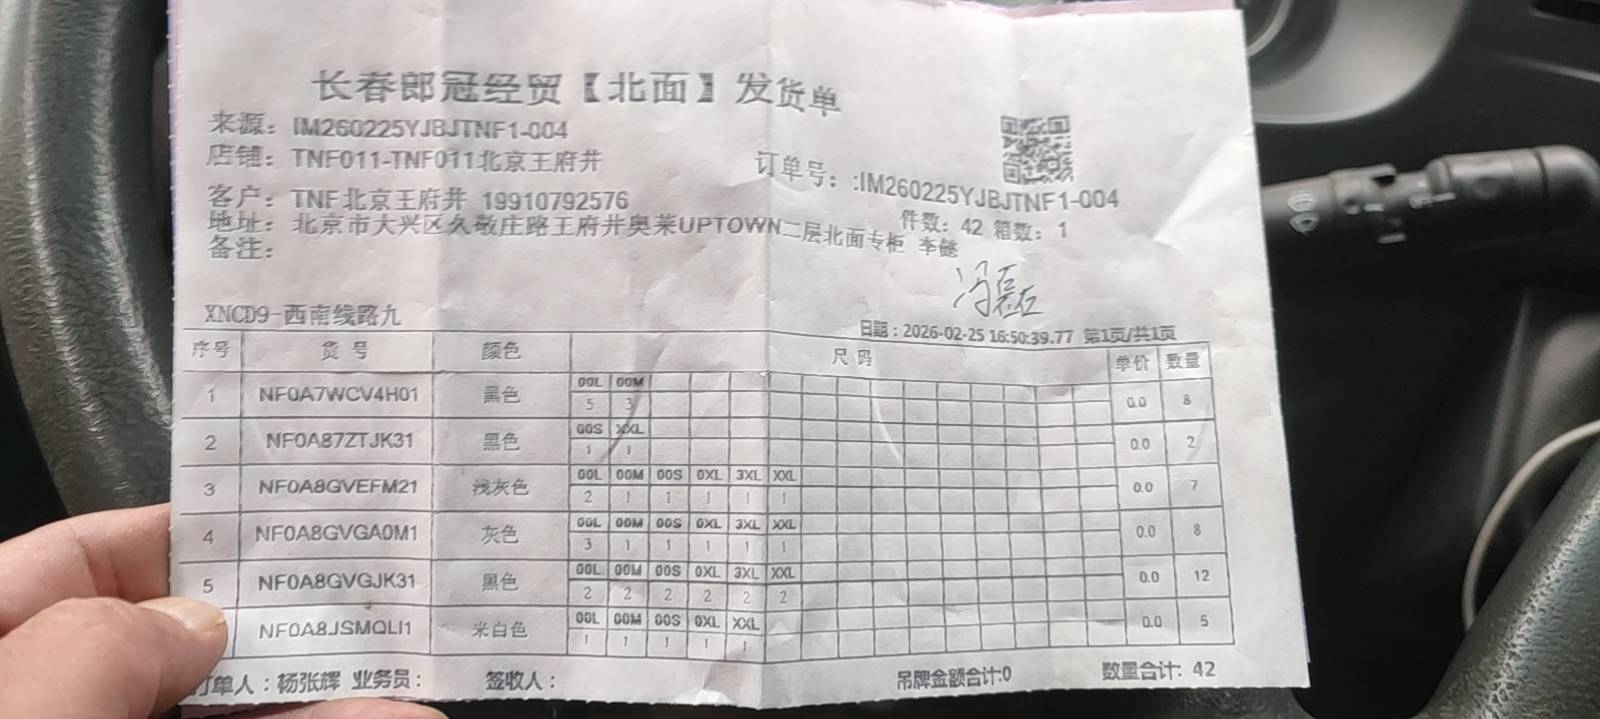 长春郎冠经贸【北面】发货单
来源：IM260225YJBJTNF1-004
店铺：TNF011-TNF011北京王府井
订单号：:IM260225YJBJTNF1-004
客户：TNF北京王府井 19910792576
件数：42 箱数：1
地址：北京市大兴区久敬庄路王府井奥莱UPTOWN二层北面专柜 李懿
备注：
冯磊
XNCD9-西南线路九
日期：2026-02-25 16:50:39.77 第1页/共1页
序号 货号 颜色 尺码 单价 数量
00L 00M
1 NF0A7WCV4H01 黑色 5 3 0.0 8
00S XXL
2 NF0A87ZTJK31 黑色 1 1 0.0 2
00L 00M 00S 0XL 3XL XXL
3 NF0A8GVEFM21 浅灰色 2 1 1 1 1 1 0.0 7
00L 00M 00S 0XL 3XL XXL
4 NF0A8GVGA0M1 灰色 3 1 1 1 1 1 0.0 8
00L 00M 00S 0XL 3XL XXL
5 NF0A8GVGJK31 黑色 2 2 2 2 2 2 0.0 12
00L 00M 00S 0XL XXL
NF0A8JSMQLI1 米白色 1 1 1 1 1 0.0 5
订单人：杨张辉 业务员： 签收人： 吊牌金额合计:0 数量合计: 42